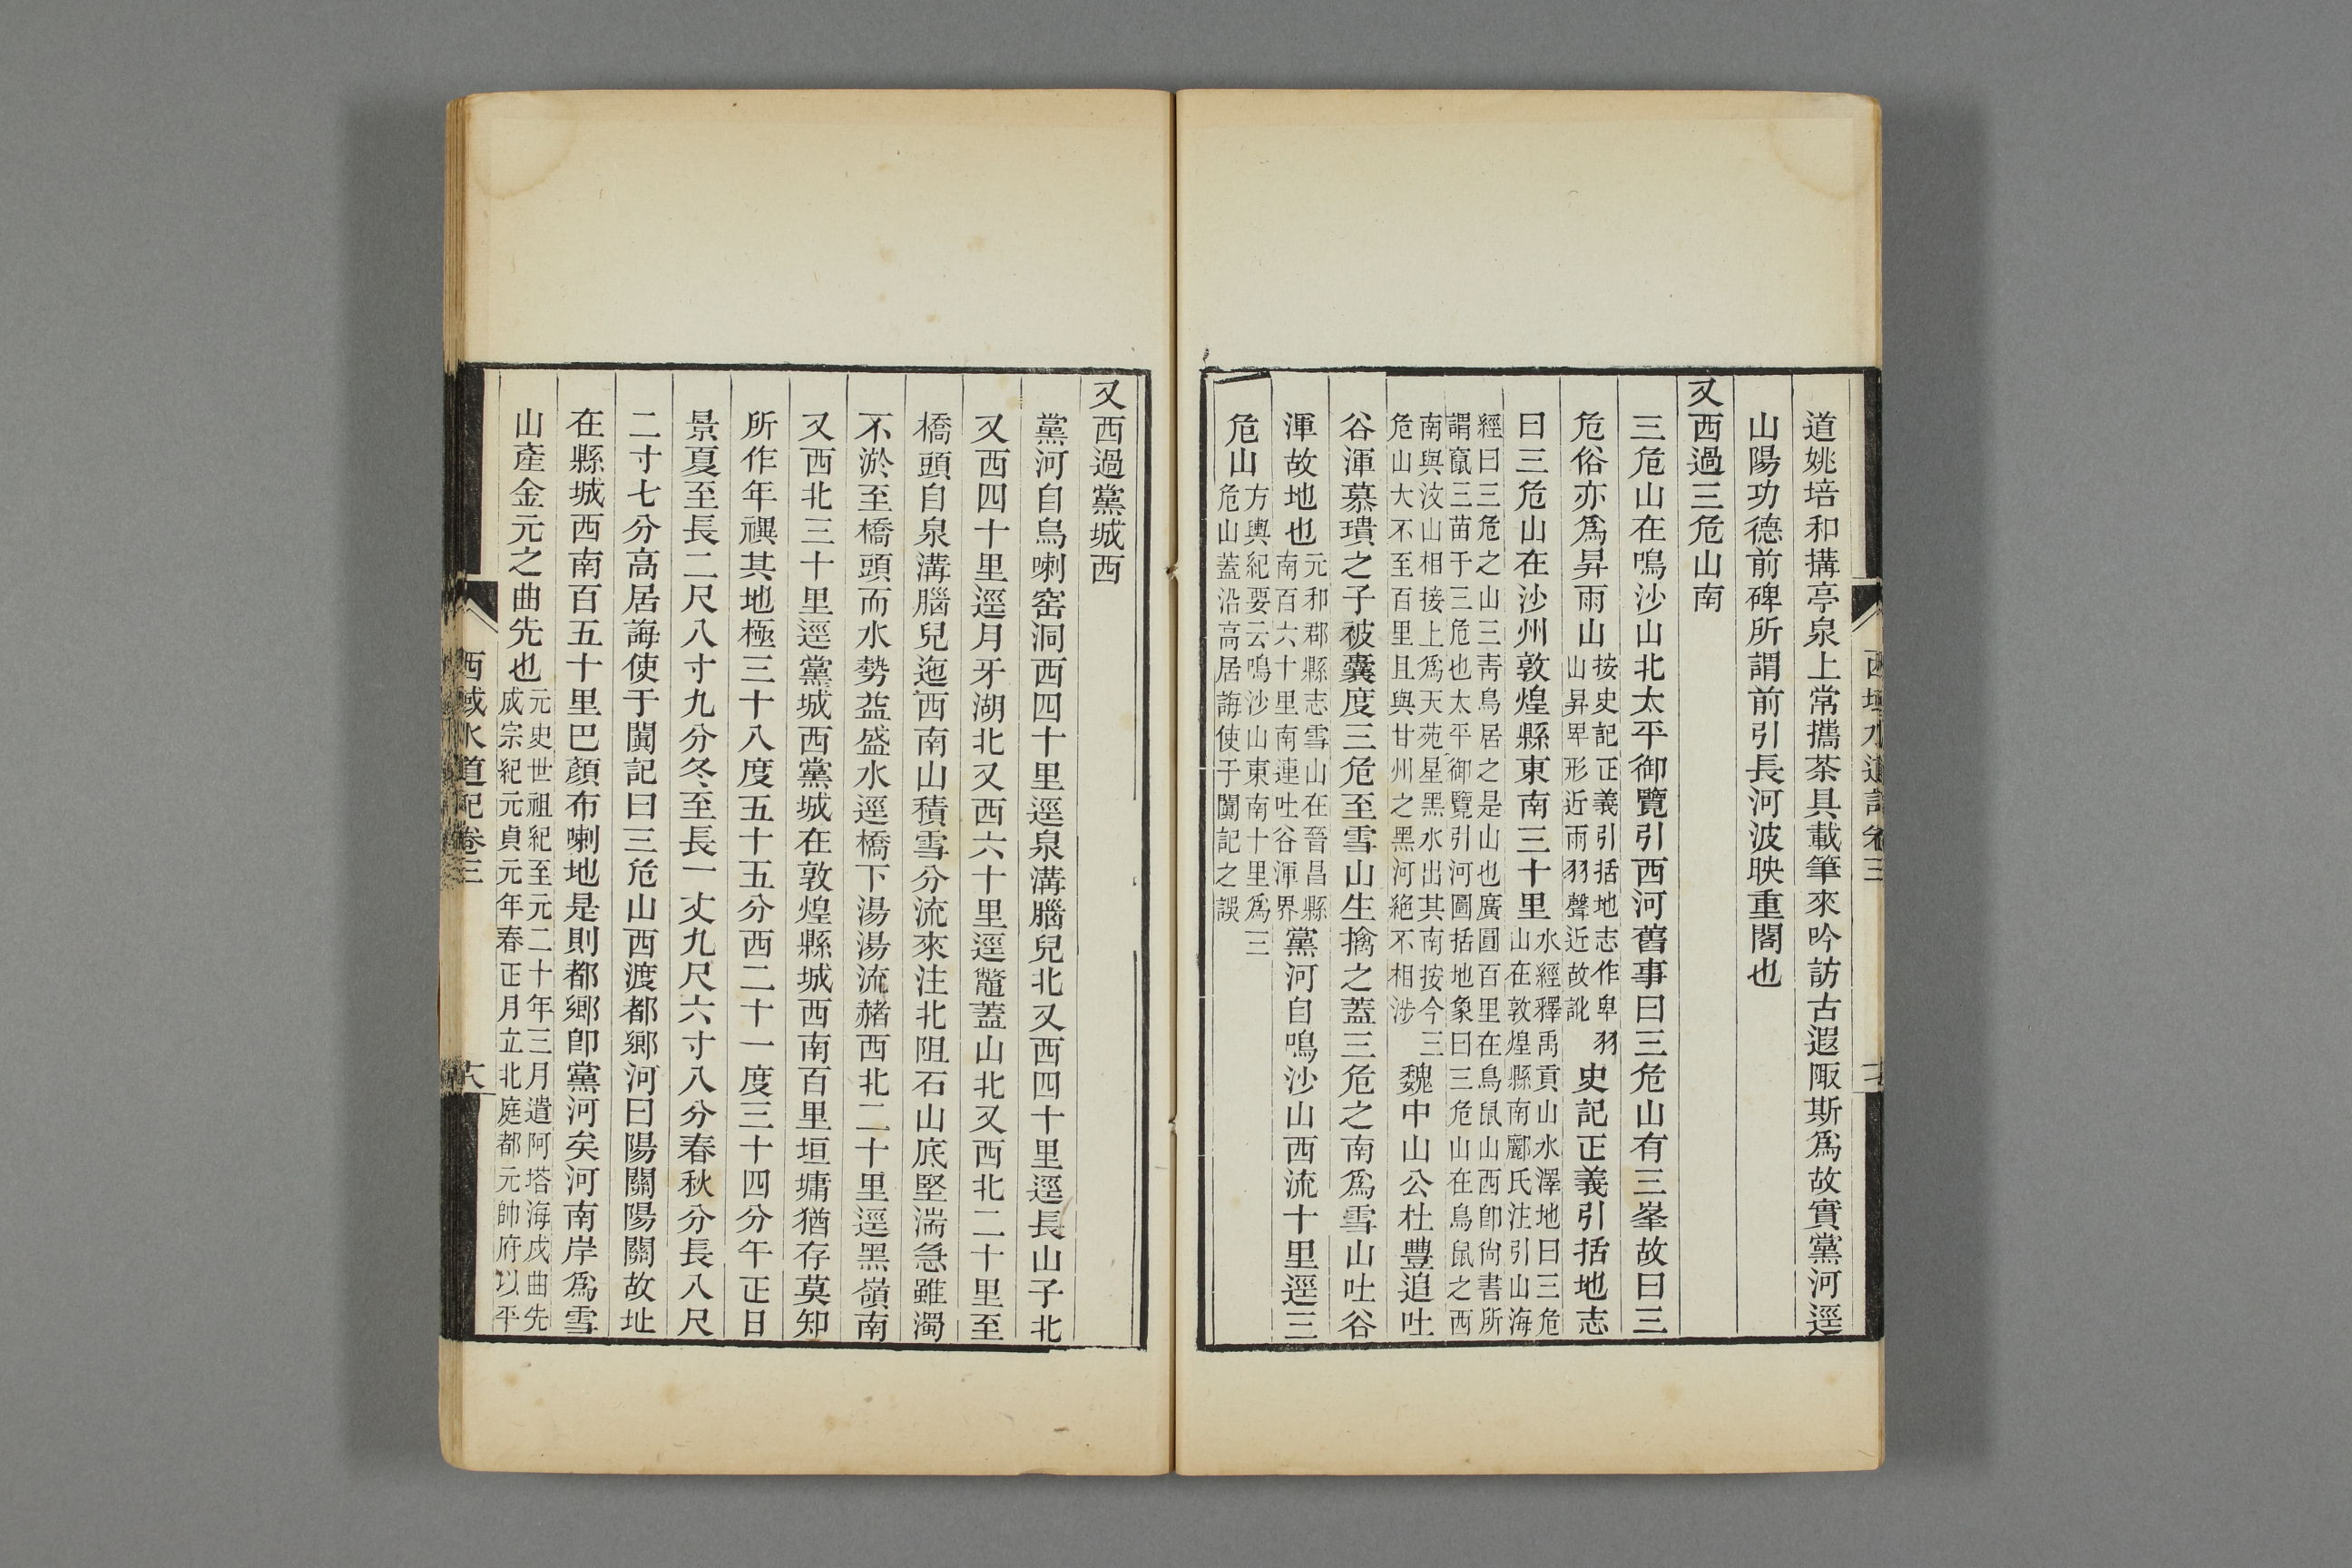 道姚培和搆亭泉上常攜茶具載筆來吟訪古遐陬斯爲故實黨河逕
山陽功德前碑所謂前引長河波映重閣也
又西過三危山南
三危山在鳴沙山北太平御覽引西河舊事曰三危山有三峯故曰三
危俗亦爲昇雨山
按史記正義引括地志作卑羽
山昇卑形近雨羽聲近故訛
史記正義引括地志
曰三危山在沙州敦煌縣東南三十里
水經釋禹貢山水澤地曰三危
山在敦煌縣南酈氏注引山海
經曰三危之山三靑鳥居之是山也廣圓百里在鳥鼠山西卽尙書所
謂竄三苗于三危也太平御覽引河圖括地象曰三危山在鳥鼠之西
南與汶山相接上爲天苑星黑水出其南按今三
危山大不至百里且與甘州之黑河絕不相涉
魏中山公杜豐追吐
谷渾慕璝之子被囊度三危至雪山生擒之蓋三危之南爲雪山吐谷
渾故地也
元和郡縣志雪山在晉昌縣
南百六十里南連吐谷渾界
黨河自鳴沙山西流十里逕三
危山
方輿紀要云鳴沙山東南十里爲三
危山蓋沿高居誨使于闐記之誤
西域水道記卷三
又西過黨城西
黨河自烏喇窑洞西四十里逕泉溝腦兒北又西四十里逕長山子北
又西四十里逕月牙湖北又西六十里逕鼈蓋山北又西北二十里至
橋頭自泉溝腦兒迤西南山積雪分流來注北阻石山底堅湍急雖濁
不淤至橋頭而水勢益盛水逕橋下湯湯流赭西北二十里逕黑嶺南
又西北三十里逕黨城西黨城在敦煌縣城西南百里垣墉猶存莫知
所作年禩其地極三十八度五十五分西二十一度三十四分午正日
景夏至長二尺八寸九分冬至長一丈九尺六寸八分春秋分長八尺
二寸七分高居誨使于闐記曰三危山西渡都鄉河曰陽關陽關故址
在縣城西南百五十里巴顏布喇地是則都鄉卽黨河矣河南岸爲雪
山產金元之曲先也
元史世祖紀至元二十年三月遣阿塔海戍曲先
成宗紀元貞元年春正月立北庭都元帥府以平
西域水道記卷三
十八